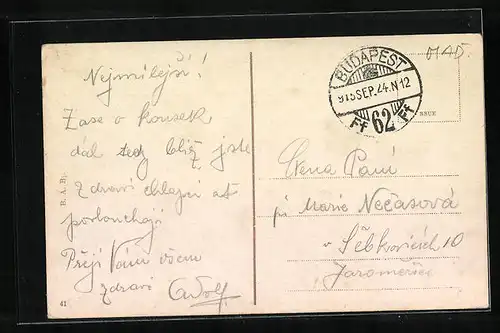 Nejmilejší!
Zase o kousek
dál tedy blíž jste
Zdraví chlapci ať
poslouchají
Přeji Vám všem
zdraví Adolf
B. A. B.
41
BUDAPEST
915 SEP. 24. N 12
62
MAD.
Ctěná Paní
pí Marie Nečasová
v Šebkovicích 10
Jaroměřice